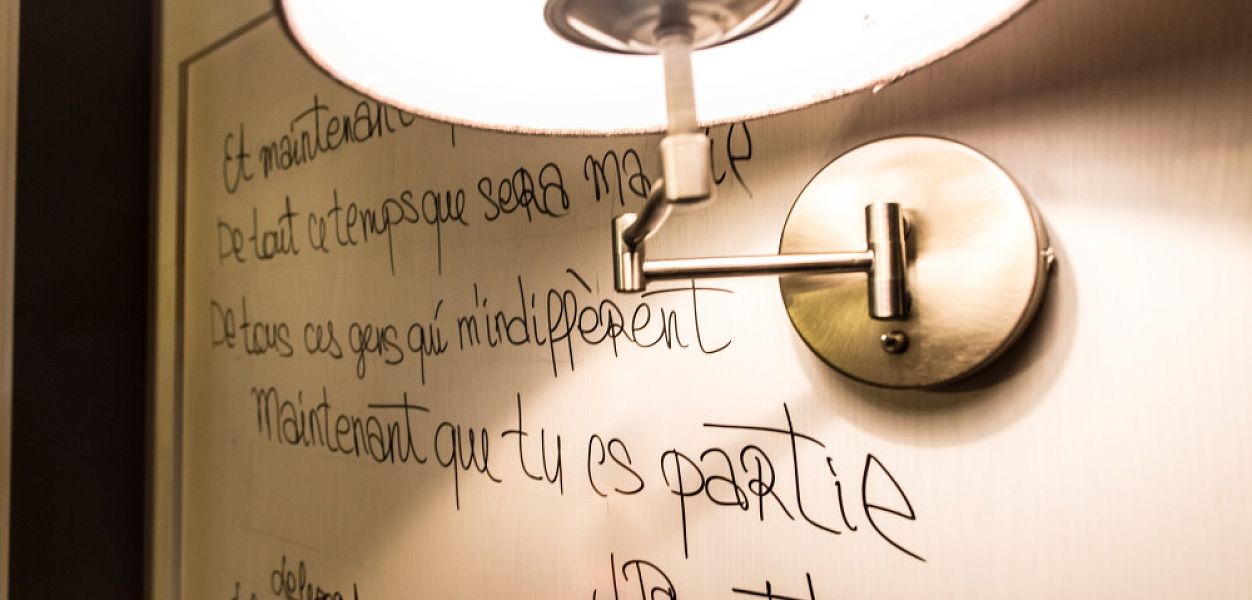 Et maintenant
De tout ce temps que sera ma vie
De tous ces gens qui m'indiffèrent
Maintenant que tu es partie